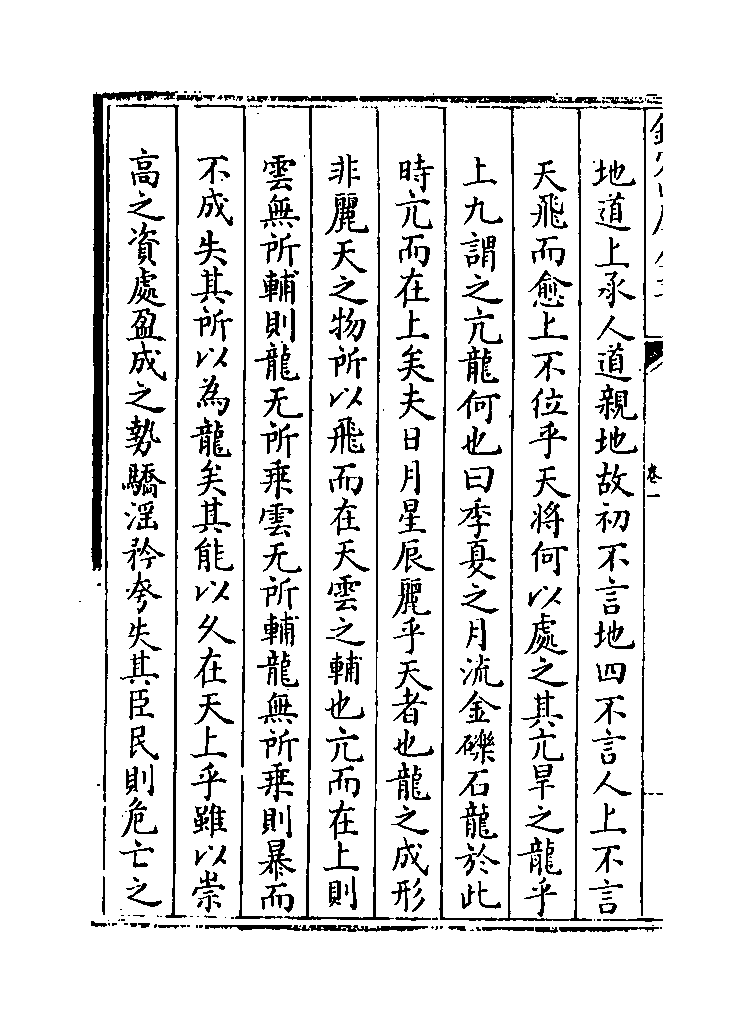 地道上承人道親地故初不言地四不言人上不言
天飛而愈上不位乎天將何以處之其亢旱之龍乎
上九謂之亢龍何也曰季夏之月流金礫石龍於此
時亢而在上矣夫日月星辰麗乎天者也龍之成形
非麗天之物所以飛而在天雲之輔也亢而在上則
雲無所輔則龍无所乗雲无所輔龍無所乗則暴而
不成失其所以為龍矣其能以久在天上乎雖以崇
高之資處盈成之勢驕滛矜夸失其臣民則危亡之
卷一